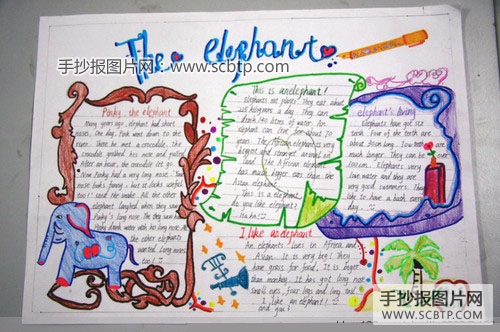 The elephant
手抄报图片网：www.scbtp.com
Pinky the elephant
Many years ago, elephant had short
noses. One day, Pink went down to the
river. There he met a crocodile. The
crocodile grabbed his nose and pulled
After an hour, the crocodile let go.
Now Pinky had a very long nose.
nose looks funny, but it looks useful
too! said the snake. All the other
elephant laughed when they saw
Pinky's long nose. The they saw
Pinky drink water with his long nose. As
the other elephants
wanted long noses
too!
This is an elephant!
Elephants eat plants. They eat about
225 kilograms a day. They can
drink 140 litres of water. An
elephant can live for about 70
years. The African elephant is very
biggest and stronger animal on
land. The African elephant
has much bigger ears than the
Asian elephant.
This is a elephant.
Do you like elephant?
Ha ha!
elephant's living
Elephants have got six
teeth. Four of the teeth are
about 30cm long. Two teeth are
much longer. They can be
Elephants very
love water and they are
very good swimmers. They
like to have a bath every
day.
I like an elephant
An elephants lives in Africa and
Asian. It is very big! They
have grass for food. It is bigger
than monkey. It has got long nose
small eyes, four legs and long tail.
I like an elephant!
and you?
手抄报图片网
SCBTP.COM